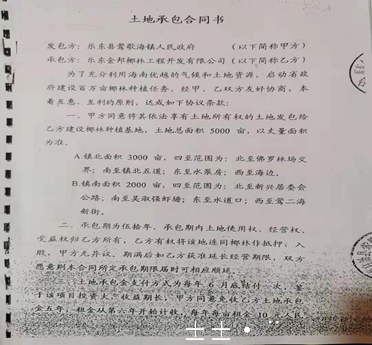 土地承包合同书
发包方：乐东县莺歌海镇人民政府 （以下简称甲方）
承包方：乐东金邦椰林工程开发有限公司 （以下简称乙方）
为了充分利用海南优越的气候和土地资源，启动省政
府建设百万亩椰林种植任务，经甲、乙双方友好协商，本
着互惠、互利的原则，达成如下协议条款：
一、甲方同意将其依法享有土地所有权的土地发包给
乙方建设椰林种植基地，土地总面积 5000 亩，以丈量面积
为准。
A.镇北面积 3000 亩，四至范围为：北至佛罗林场交
界；南至镇北五道；东至水泵房；西至海边。
B.镇南面积 2000 亩，四至范围为：北至新兴居委会
公路；南至吴淑强虾塘；东至水道口；西至莺二海
新街。
二、承包期为伍拾年，承包期内土地使用权、经营权、
受益权归乙方所有，乙方有权将该地连同椰林作抵押、入
股，甲方无异议，期满后如乙方获准延长经营期限，双方
愿意则本合同所定承包期限届时可相应顺延。
土地承包金支付方式为每年 6 月底结付一次，鉴
于该项目投资大、收益期长，甲方同意免收乙方土地承包
金五年，租金从第六年开始计收，每年每亩租金 10 元人民